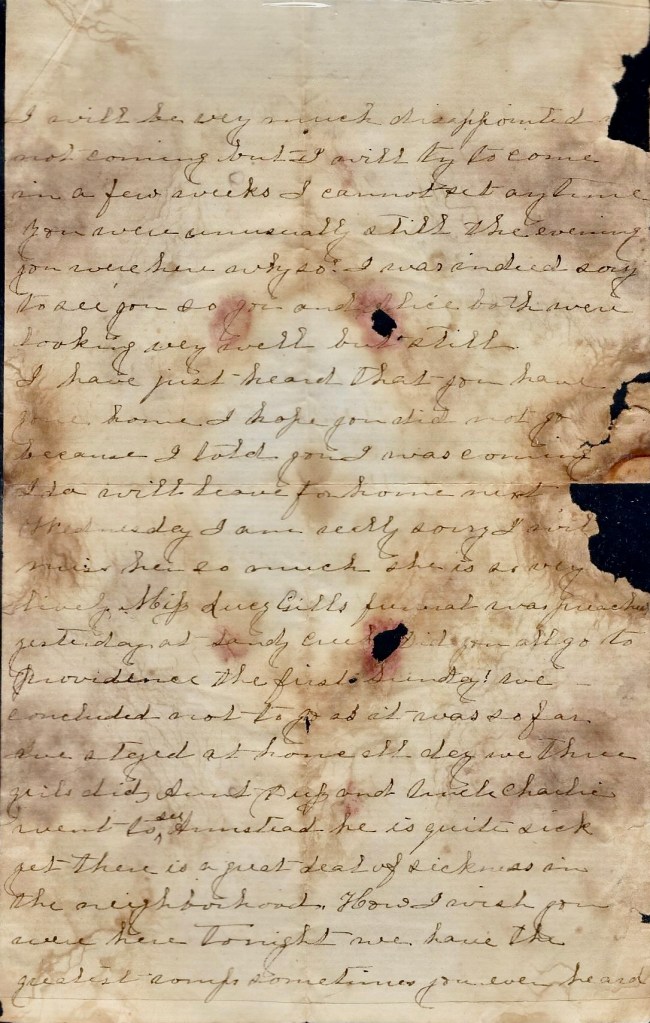 I will be very much disappointed
not coming but I will try to come
in a few weeks I cannot set any time
you were unusually still the evening
you were here why so? I was indeed sory
to see you so you and Alice both were
looking very well but still.
I have just heard that you have
gone home I hope you did not go
because I told you I was coming
Ida will leave for home next
Wednesday I am really sorry I will
miss her so much she is so very
lively. Miss Lucy Gills funeral was preached
yesterday at Sandy Creek Did you all go to
Providence the first Sunday! we
concluded not to go as it was so far
we stayed at home all day we three
girls did, Aunt and Uncle Charlie
went to see Armstead he is quite sick
yet there is a great deal of sickness in
the neighborhood. How I wish you
were here tonight we have the
greatest romps sometimes you ever heard